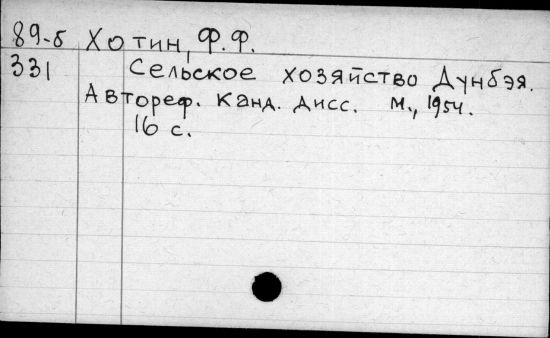 89-б Хотин, Ф.Ф.
331 Сельское хозяйство Дунбэя.
Автореф. канд. дисс. М., 1954.
16 с.